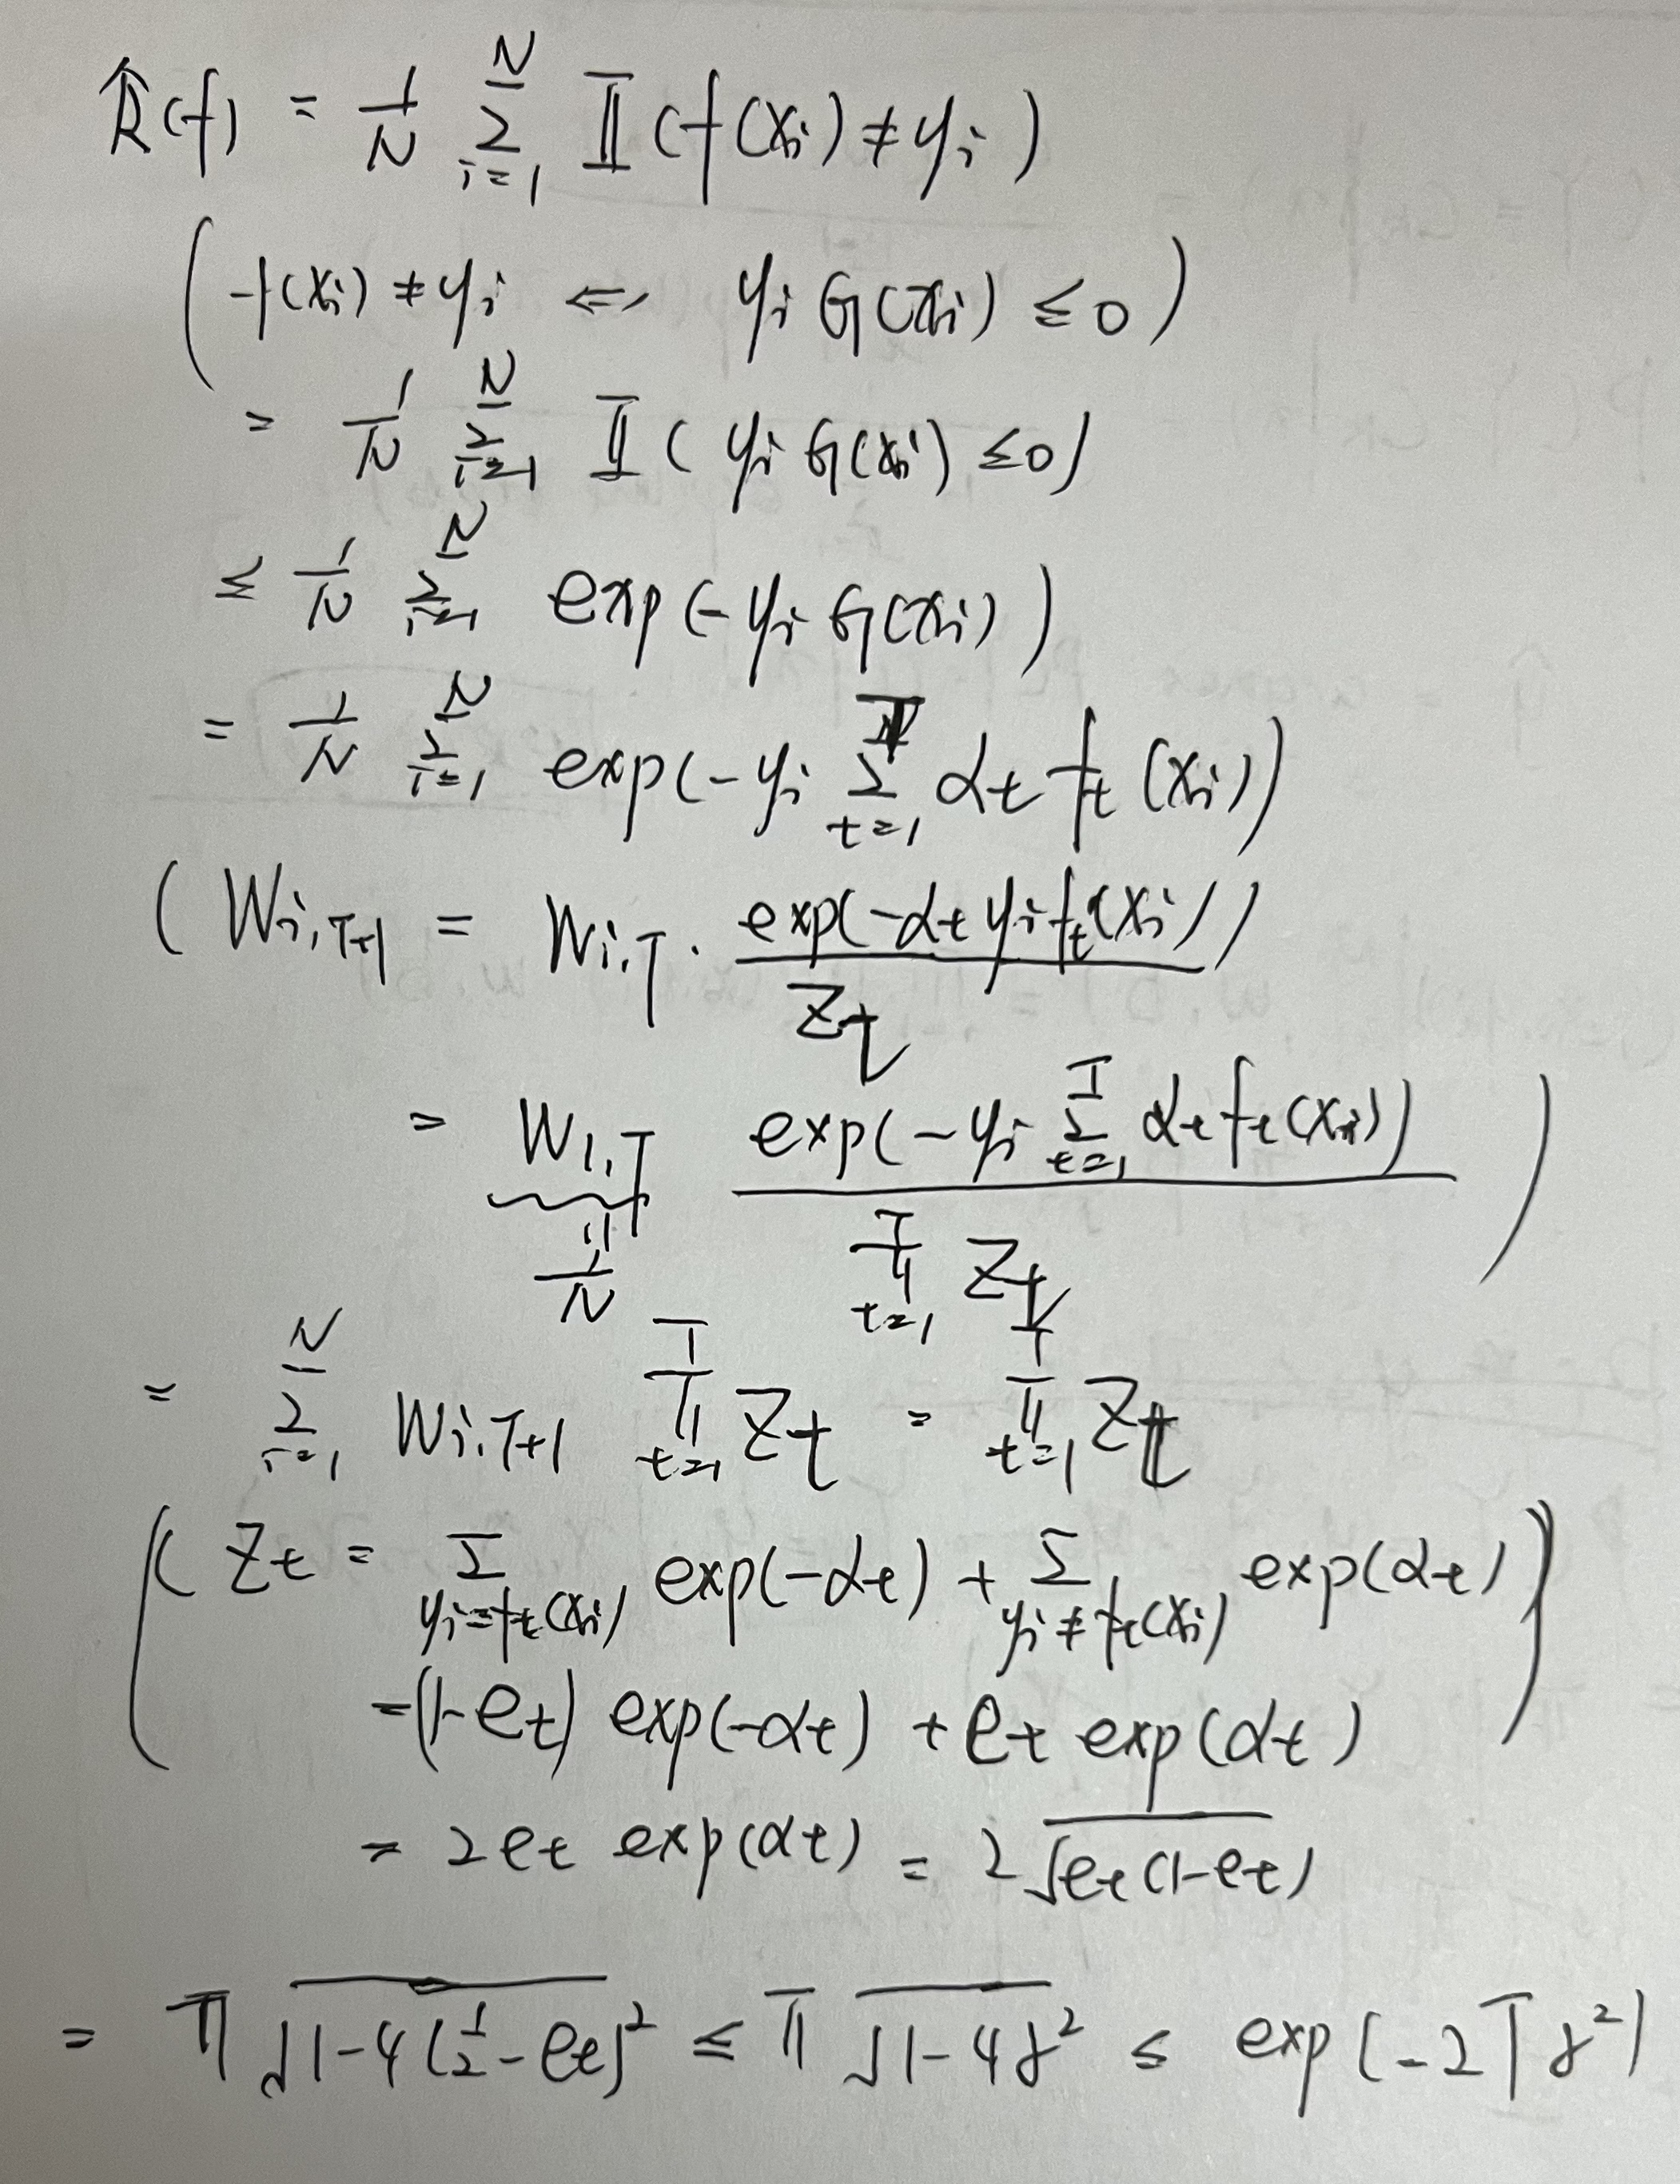 R̂(f) = 1/N Σ_{i=1}^{N} 𝕀(f(xi) ≠ yi)
(f(xi) ≠ yi ⇔ yi G(xi) ≤ 0)
= 1/N Σ_{i=1}^{N} 𝕀(yi G(xi) ≤ 0)
≤ 1/N Σ_{i=1}^{N} exp(-yi G(xi))
= 1/N Σ_{i=1}^{N} exp(-yi Σ_{t=1}^{T} αt ft(xi))
(Wi,T+1 = Wi,T · exp(-αt yi ft(xi)) / Zt
= W1,T exp(-yi Σ_{t=1}^{T} αt ft(xi)) / Π_{t=1}^{T} Zt )
= 1/N
= Σ_{i=1}^{N} Wi,T+1 Π_{t=1}^{T} Zt = Π_{t=1}^{T} Zt
(( Zt = Σ_{yi=ft(xi)} exp(-αt) + Σ_{yi≠ft(xi)} exp(αt) ))
= (1-et) exp(-αt) + et exp(αt)
= 2et exp(αt) = 2√(et(1-et))
= Π √(1-4(1/2-et)²) ≤ Π √(1-4γ²) ≤ exp(-2Tγ²)